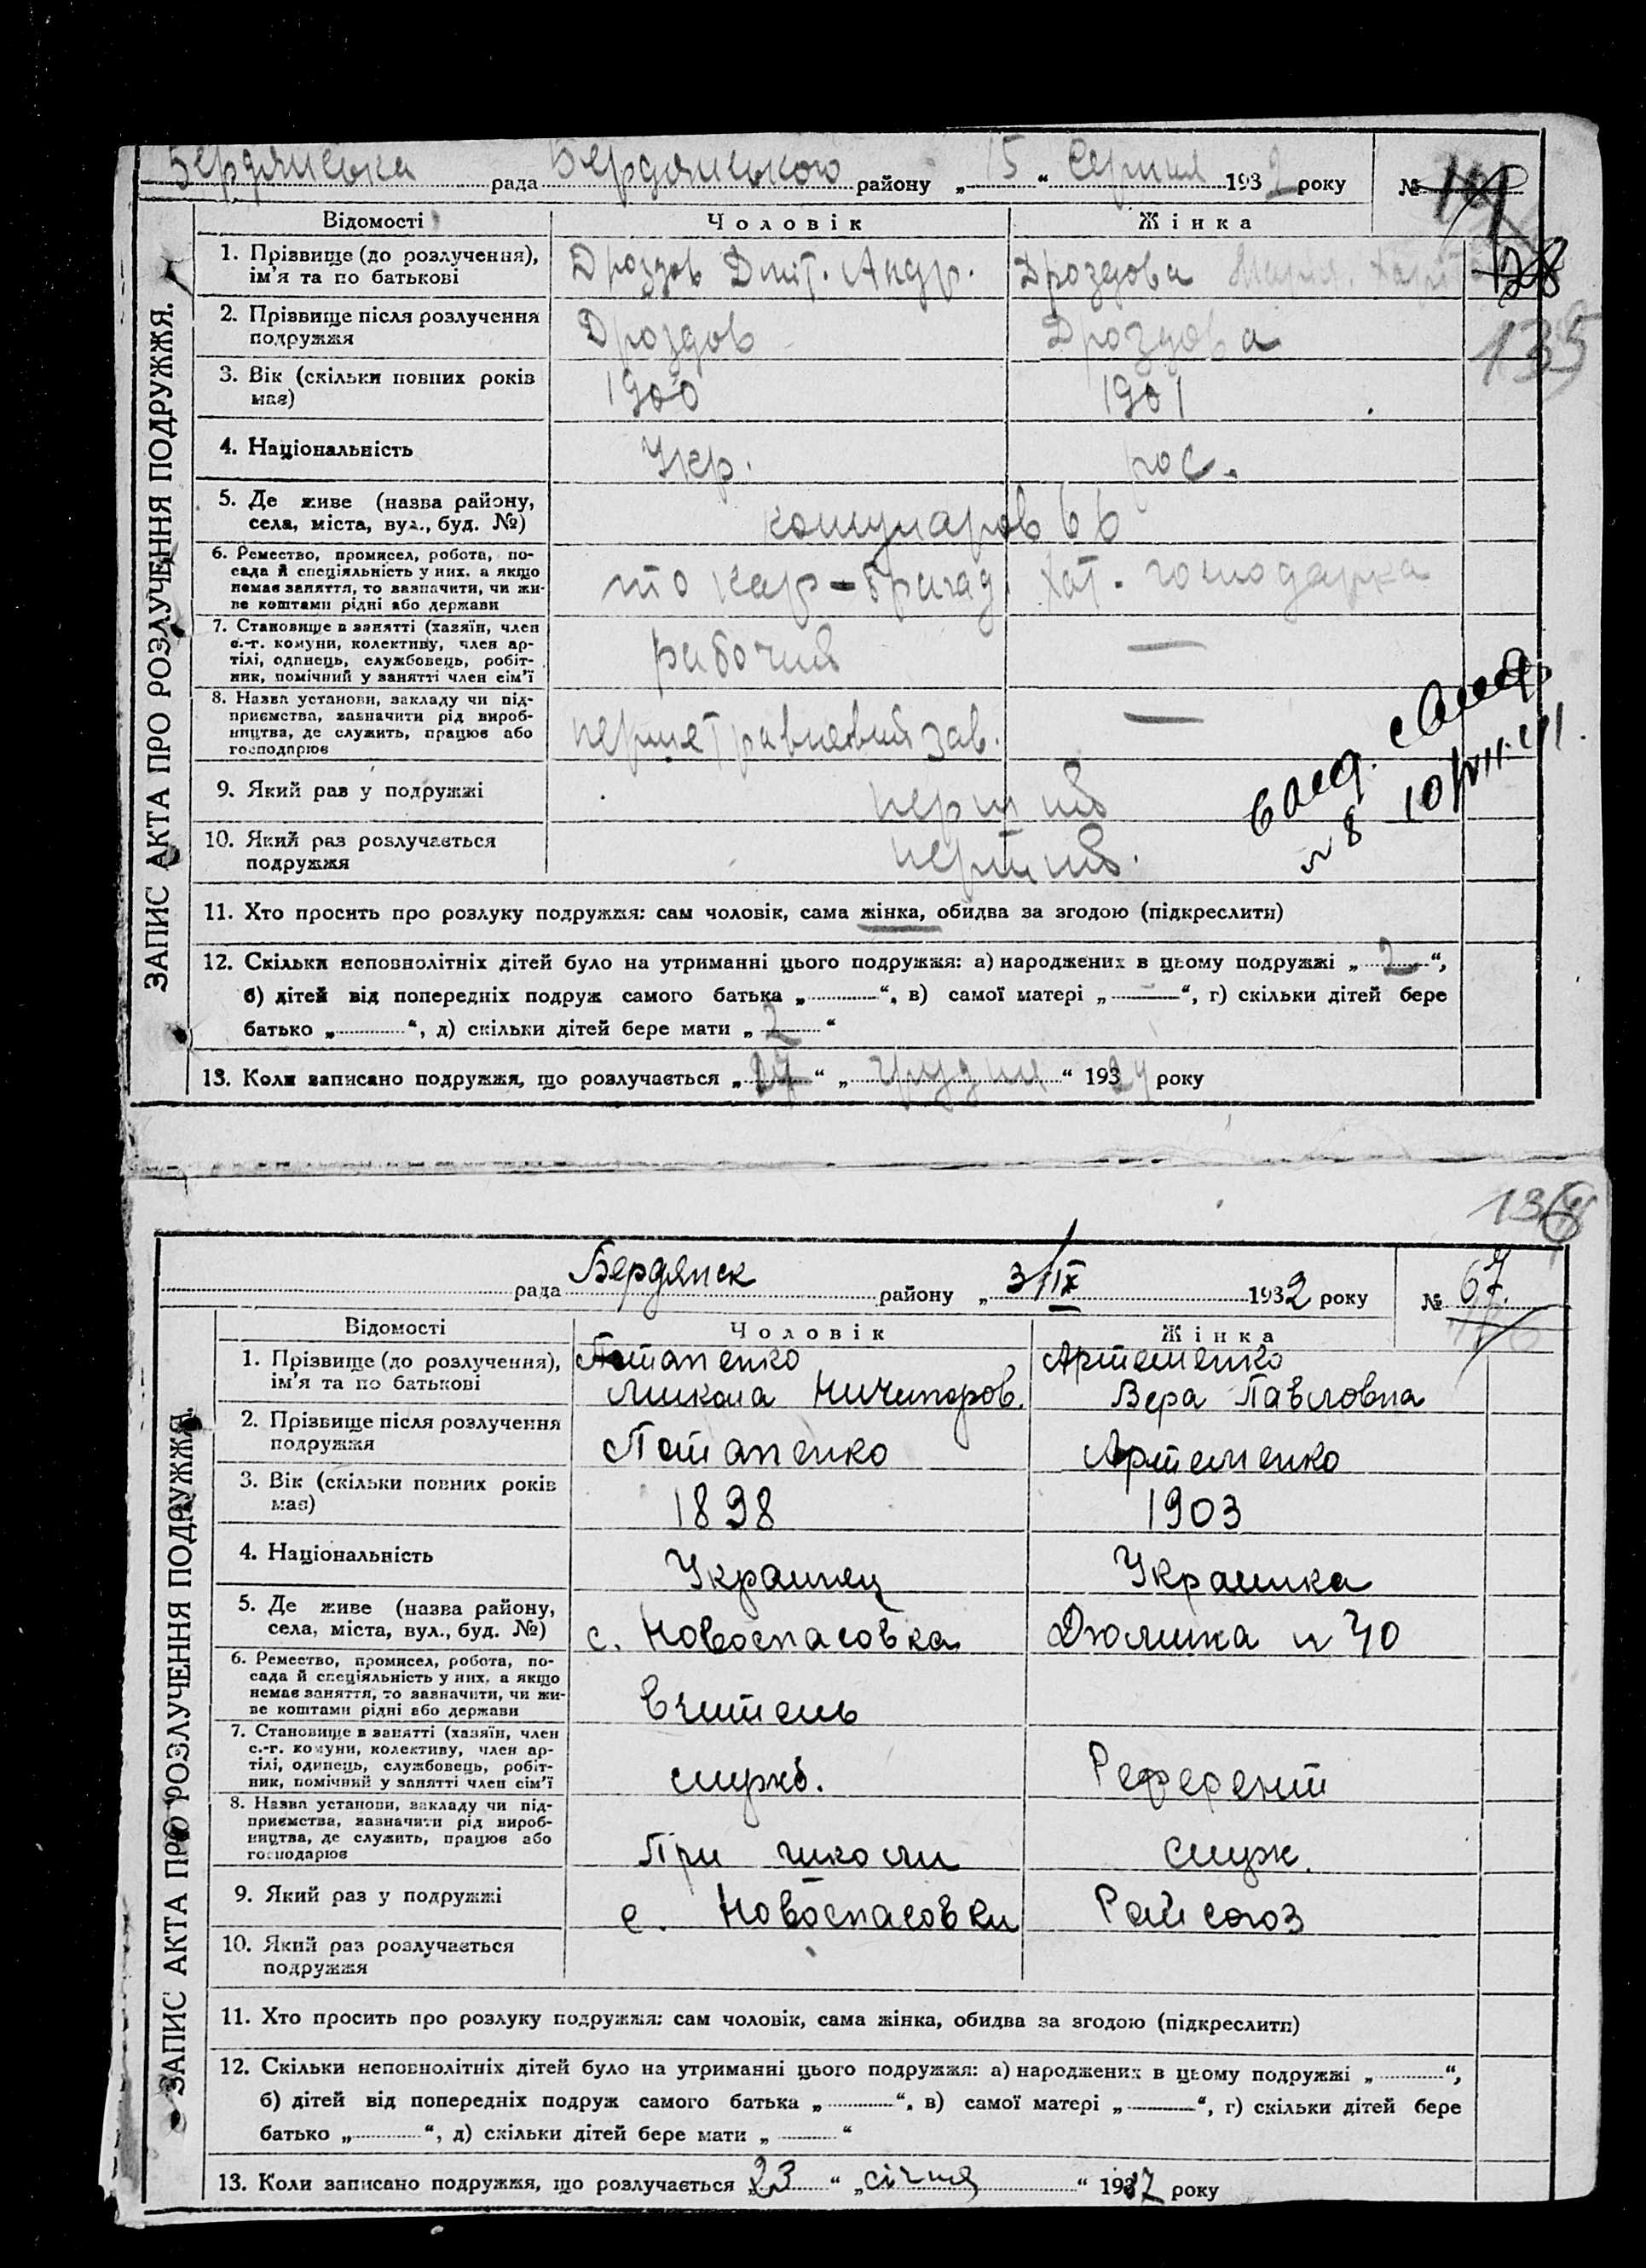 Бердянська рада Бердянського району „ 15 “ Серпня 1932 року №
128
135
ЗАПИС АКТА ПРО РОЗЛУЧЕННЯ ПОДРУЖЖЯ.
Відомості Чоловік Жінка
1. Прізвище (до розлучення), ім'я та по батькові Дроздов Дмит. Андр. Дроздова Мария.
2. Прізвище після розлучення подружжя Дроздов Дроздова
3. Вік (скільки повних років має) 1900 1901
4. Національність Укр. рос.
5. Де живе (назва району, села, міста, вул., буд. №) комунаров 66
6. Ремество, промисел, робота, по-
сада й спеціяльність у них, а якщо
немає заняття, то зазначити, чи жи-
ве коштами рідні або держави
токар-бригад. хат. господарка
7. Становище в занятті (хазяїн, член
с.-г. комуни, колективу, член ар-
тілі, одинець, службовець, робіт-
ник, помічний у занятті член сім'ї
рабочий —
8. Назва установи, закладу чи під-
приємства, зазначити рід вироб-
ництва, де служить, працює або
господарює
першетравневий зав. —
9. Який раз у подружжі перший
10. Який раз розлучається подружжя перший
№ 8
11. Хто просить про розлуку подружжя: сам чоловік, сама жінка, обидва за згодою (підкреслити)
12. Скільки неповнолітніх дітей було на утриманні цього подружжя: а) народжених в цьому подружжі „ 2 “,
б) дітей від попередніх подруж самого батька „ “, в) самої матері „ — “, г) скільки дітей бере
батько „ “, д) скільки дітей бере мати „ 2 “
13. Коли записано подружжя, що розлучається „ 27 “ „ грудня “ 19324 року
рада Бердянск району „ 3/IX 1932 року № 67.
ЗАПИС АКТА ПРО РОЗЛУЧЕННЯ ПОДРУЖЖЯ.
Відомості Чоловік Жінка
1. Прізвище (до розлучення), ім'я та по батькові Потапенко Микола Ничипоров. Артеменко Вера Павловна
2. Прізвище після розлучення подружжя Потапенко Артеменко
3. Вік (скільки повних років має) 1898 1903
4. Національність Украинец Украинка
5. Де живе (назва району, села, міста, вул., буд. №) с. Новоспасовка Дюмина № 40
6. Ремество, промисел, робота, по-
сада й спеціяльність у них, а якщо
немає заняття, то зазначити, чи жи-
ве коштами рідні або держави
Вчитель
7. Становище в занятті (хазяїн, член
с.-г. комуни, колективу, член ар-
тілі, одинець, службовець, робіт-
ник, помічний у занятті член сім'ї
служб. Референт
8. Назва установи, закладу чи під-
приємства, зазначити рід вироб-
ництва, де служить, працює або
господарює
При школи служ.
9. Який раз у подружжі с. Новоспасовки Райсоюз
10. Який раз розлучається подружжя
11. Хто просить про розлуку подружжя: сам чоловік, сама жінка, обидва за згодою (підкреслити)
12. Скільки неповнолітніх дітей було на утриманні цього подружжя: а) народжених в цьому подружжі „ “,
б) дітей від попередніх подруж самого батька „ “, в) самої матері „ “, г) скільки дітей бере
батько „ “, д) скільки дітей бере мати „ “
13. Коли записано подружжя, що розлучається „ 23 “ „ січня “ 1932 року